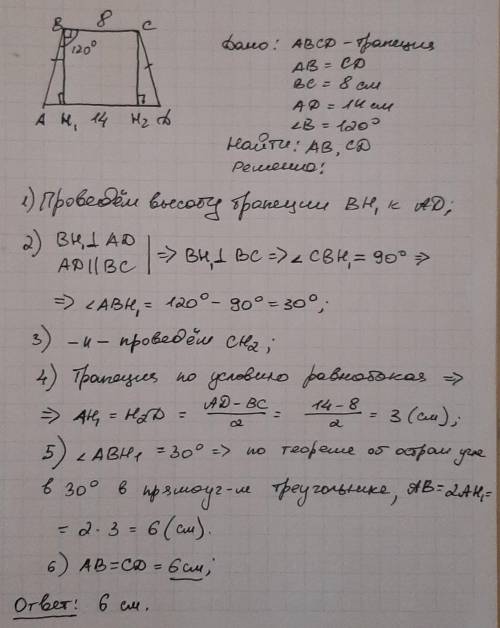 B 8 C
120°
A H₁ 14 H₂ D
Дано: ABCD - трапеция
AB = CD
BC = 8 см
AD = 14 см
∠B = 120°
Найти: AB, CD
Решение:
1) Проведём высоту трапеции BH₁ к AD;
2) BH₁ ⊥ AD
AD || BC | => BH₁ ⊥ BC => ∠CBH₁ = 90° =>
=> ∠ABH₁ = 120° - 90° = 30°;
3) -и- проведём CH₂;
4) Трапеция по условию равнобокая =>
=> AH₁ = H₂D = (AD - BC)/2 = (14 - 8)/2 = 3 (см);
5) ∠ABH₁ = 30° => по теореме об остром угле
в 30° в прямоуг-м треугольнике, AB = 2AH₁ =
= 2 · 3 = 6 (см).
6) AB = CD = 6 см;
Ответ: 6 см.